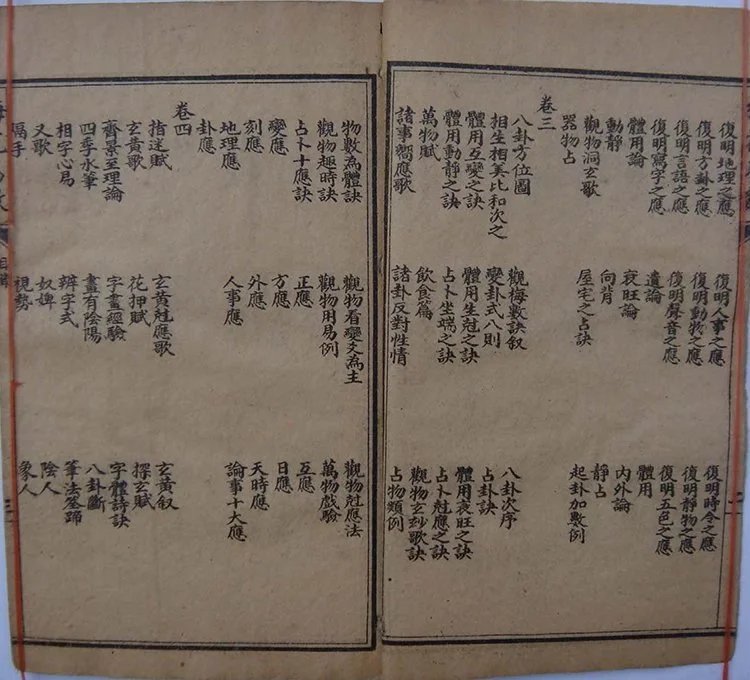 復明地理之應　復明人事之應　復明時令之應
復明方卦之應　復明動物之應　復明靜物之應
復明言語之應　復明聲音之應　復明五色之應
復明寫字之應　遺論　體用
體用論　衰旺論　內外論
動靜　向背　靜占
觀物洞玄歌　屋宅之占訣　起卦加數例
器物占
卷三
八卦方位圖　觀梅數訣叙　八卦次序
相生相美比和次之　變卦式八則　占卦訣
體用互變之訣　體用生尅之訣　體用衰旺之訣
體用動靜之訣　占卜坐端之訣　占卜尅應之訣
萬物賦　飲食篇　觀物玄妙歌訣
諸事響應歌　諸卦反對性情　占物類例
物數為體訣　觀物看變爻為主　觀物尅應法
觀物趣時訣　觀物用易例　萬物戲驗
占卜十應訣　正應　互應
變應　方應　日應
刻應　外應　天時應
地理應　人事應　論事十大應
卦應
卷四
指迷賦　玄黃尅應歌　玄黃叙
玄黃歌　花押賦　探玄賦
齊景至理論　字畫經驗　字體詩訣
四季水筆　畫有陰陽　八卦斷
相字心易　辨字式　筆法筌蹄
又歌　奴婢　陰人
隔手　視勢　象人